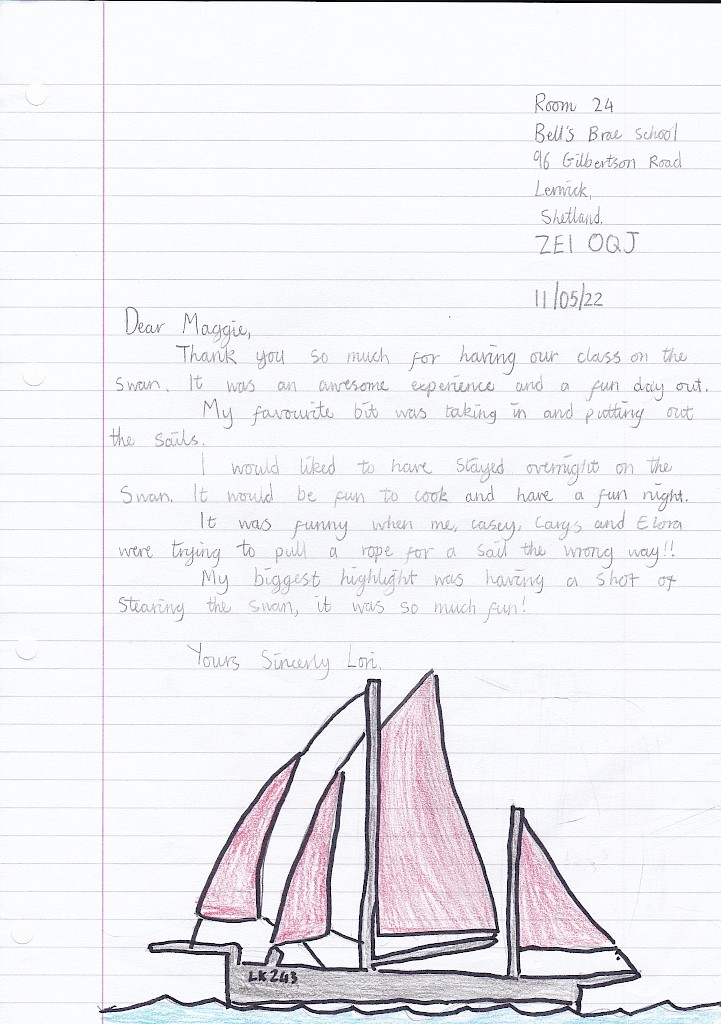 Room 24
Bell's Brae School
96 Gilbertson Road
Lerwick,
Shetland.
ZE1 0QJ
11/05/22
Dear Maggie,
Thank you so much for having our class on the
Swan. It was an awesome experience and a fun day out.
My favourite bit was taking in and putting out
the sails.
I would liked to have stayed overnight on the
Swan. It would be fun to cook and have a fun night.
It was funny when me, casey, Carys and Elora
were trying to pull a rope for a sail the wrong way!!
My biggest highlight was having a shot of
stearing the swan, it was so much fun!
Yours Sincerly Lori.
LK 243